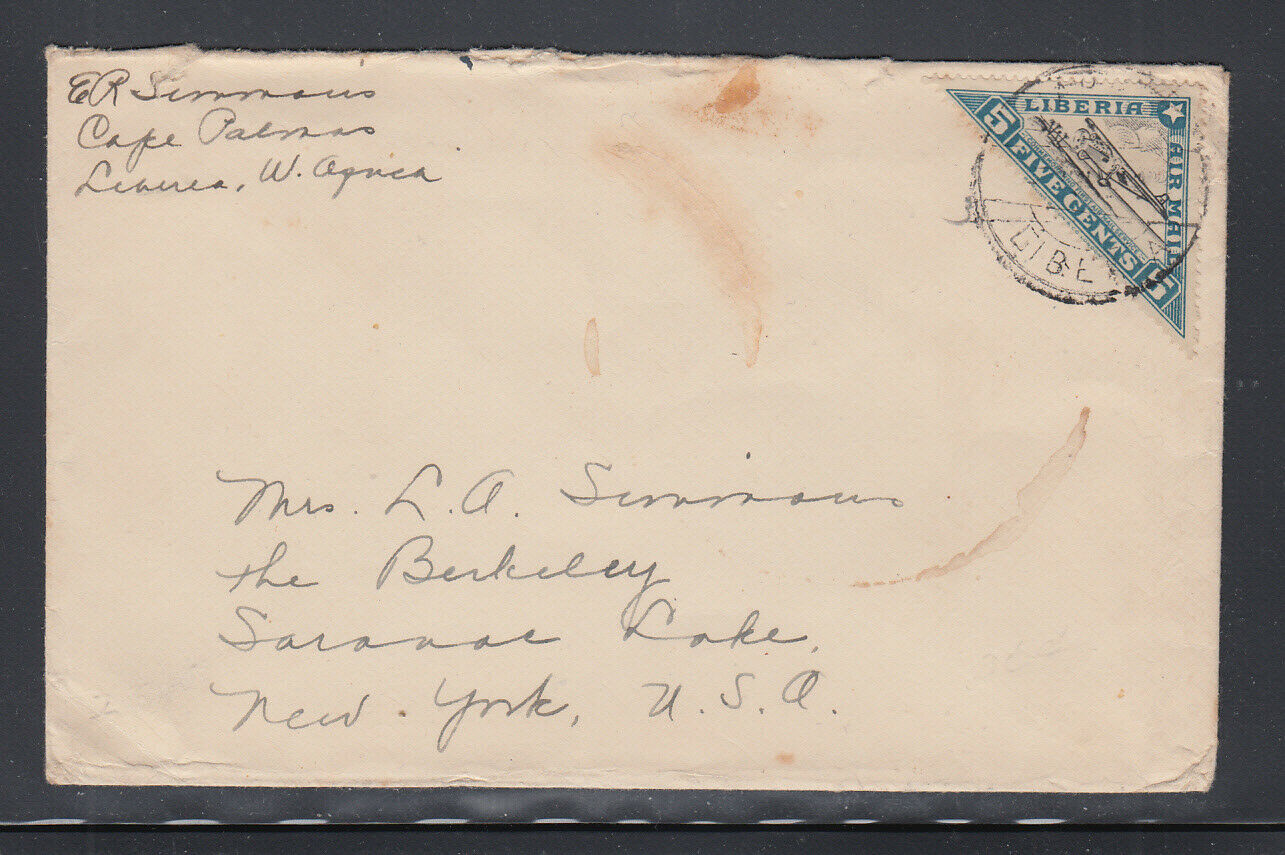 ER Simmons
Cape Palmas
Liberia, W. Africa
LIBERIA
AIR MAIL
5 FIVE CENTS 5
Mrs. L. A. Simmons
The Berkeley
Saranac Lake,
New York, U.S.A.